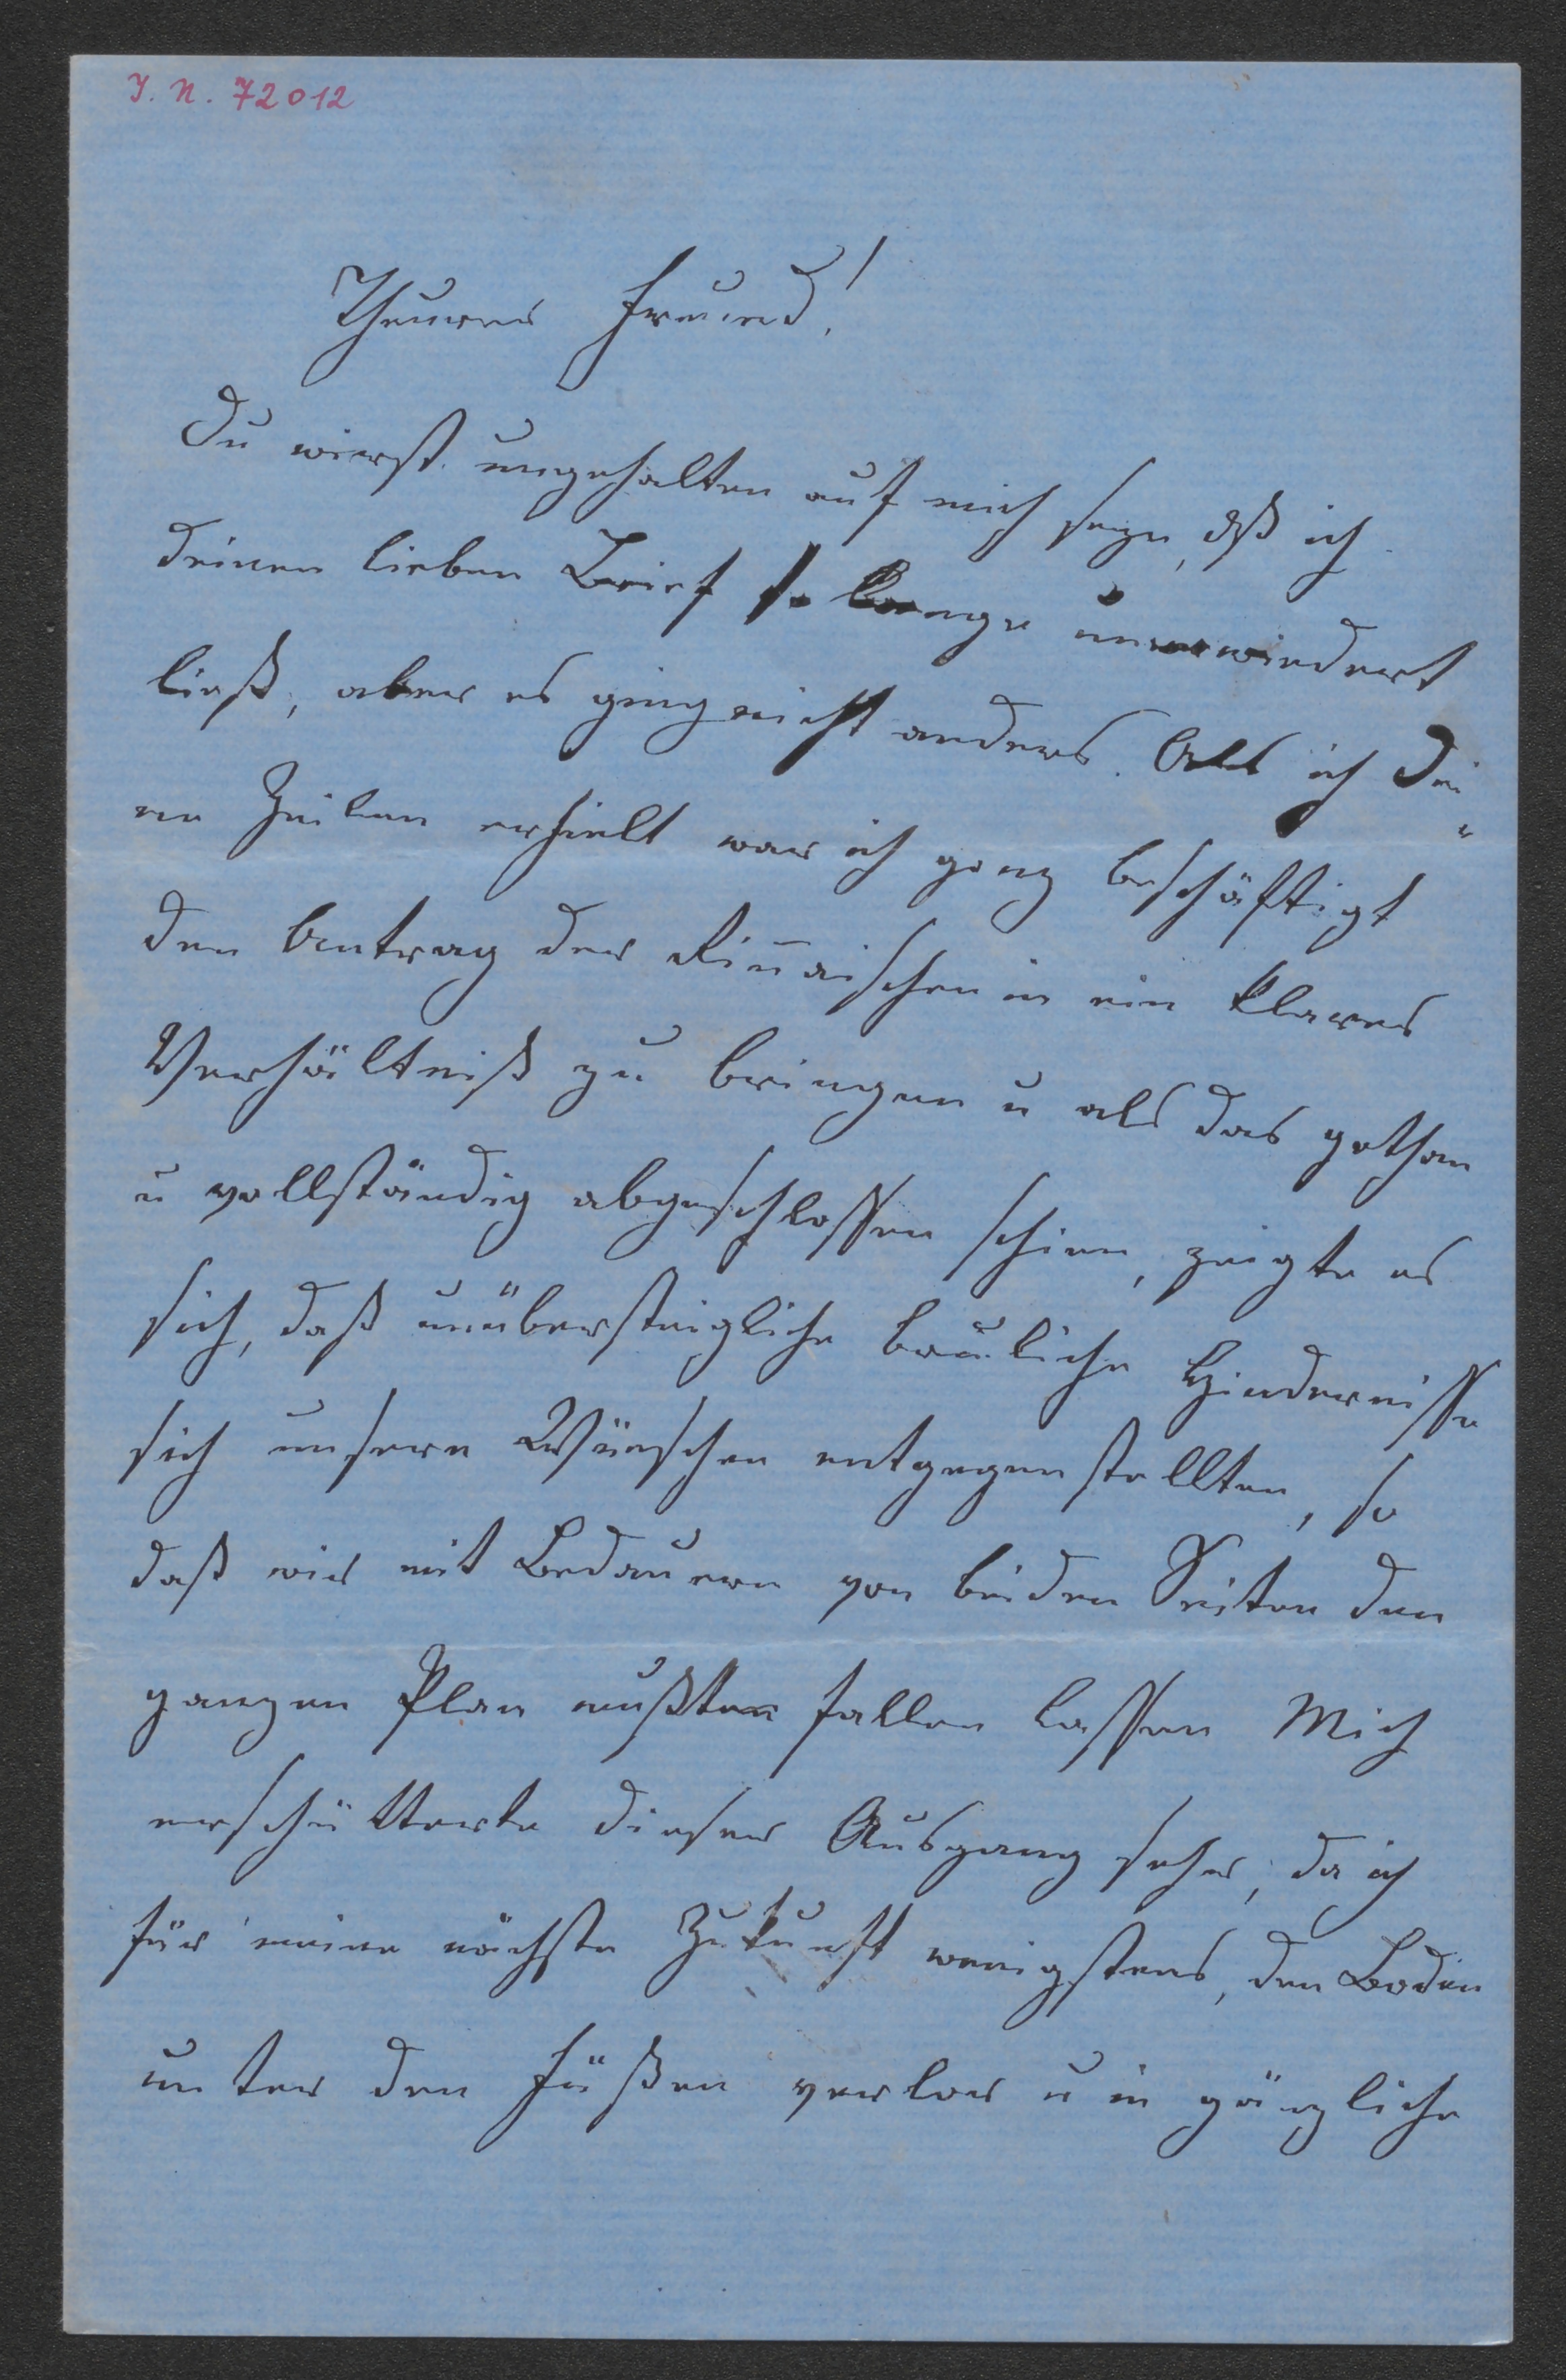 I. N. 72012
Theurer Freund!
Du wirst ungehalten auf mich seyn, dß ich
deinen lieben Brief so lange unerwiedert
ließ, aber es ging nicht anders. Als ich Dei-
ne Zeilen erhielt war ich ganz beschäftigt
den Antrag der in ein klares
Verhältniß zu bringen u als das gethan
u vollständig abgeschlossen schien, zeigte es
sich, daß unübersteigliche bauliche Hindernisse
sich unsern Wünschen entgegenstellten, so
daß wir mit Bedauern von beiden Seiten den
ganzen Plan mußten fallen lassen Mich
erschütterte dieser Ausgang sehr, da ich
für meine nächste Zukunft wenigstens, den Boden
unter den Füßen verlor u in gänzliche